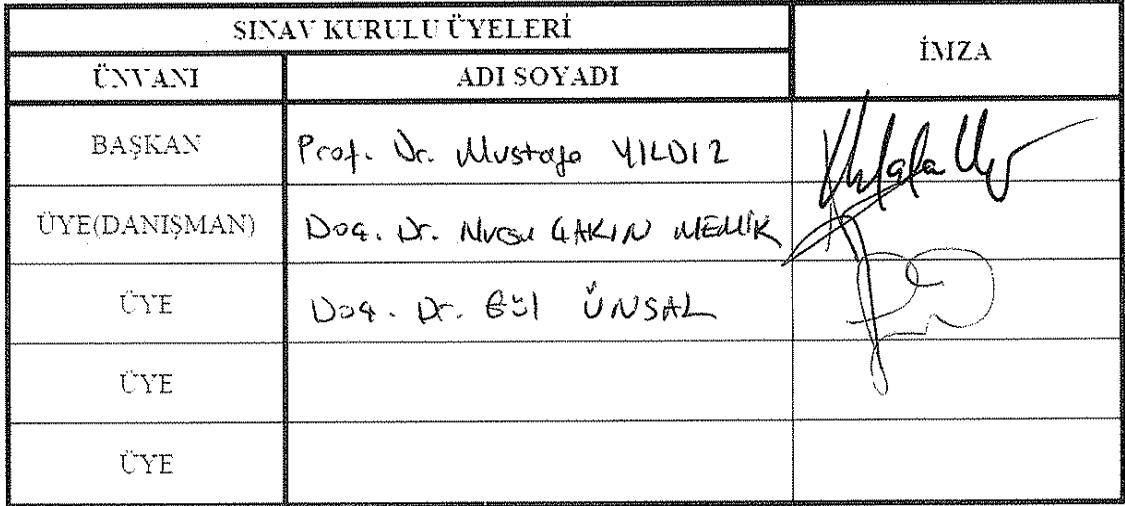 SINAV KURULU ÜYELERİ
İMZA
ÜNVANI ADI SOYADI
BAŞKAN Prof. Dr. Mustafa YILDIZ
ÜYE(DANIŞMAN) Doç. Dr. ÇAKIN MEMİK
ÜYE Doç. Dr. Gül ÜNSAL
ÜYE
ÜYE